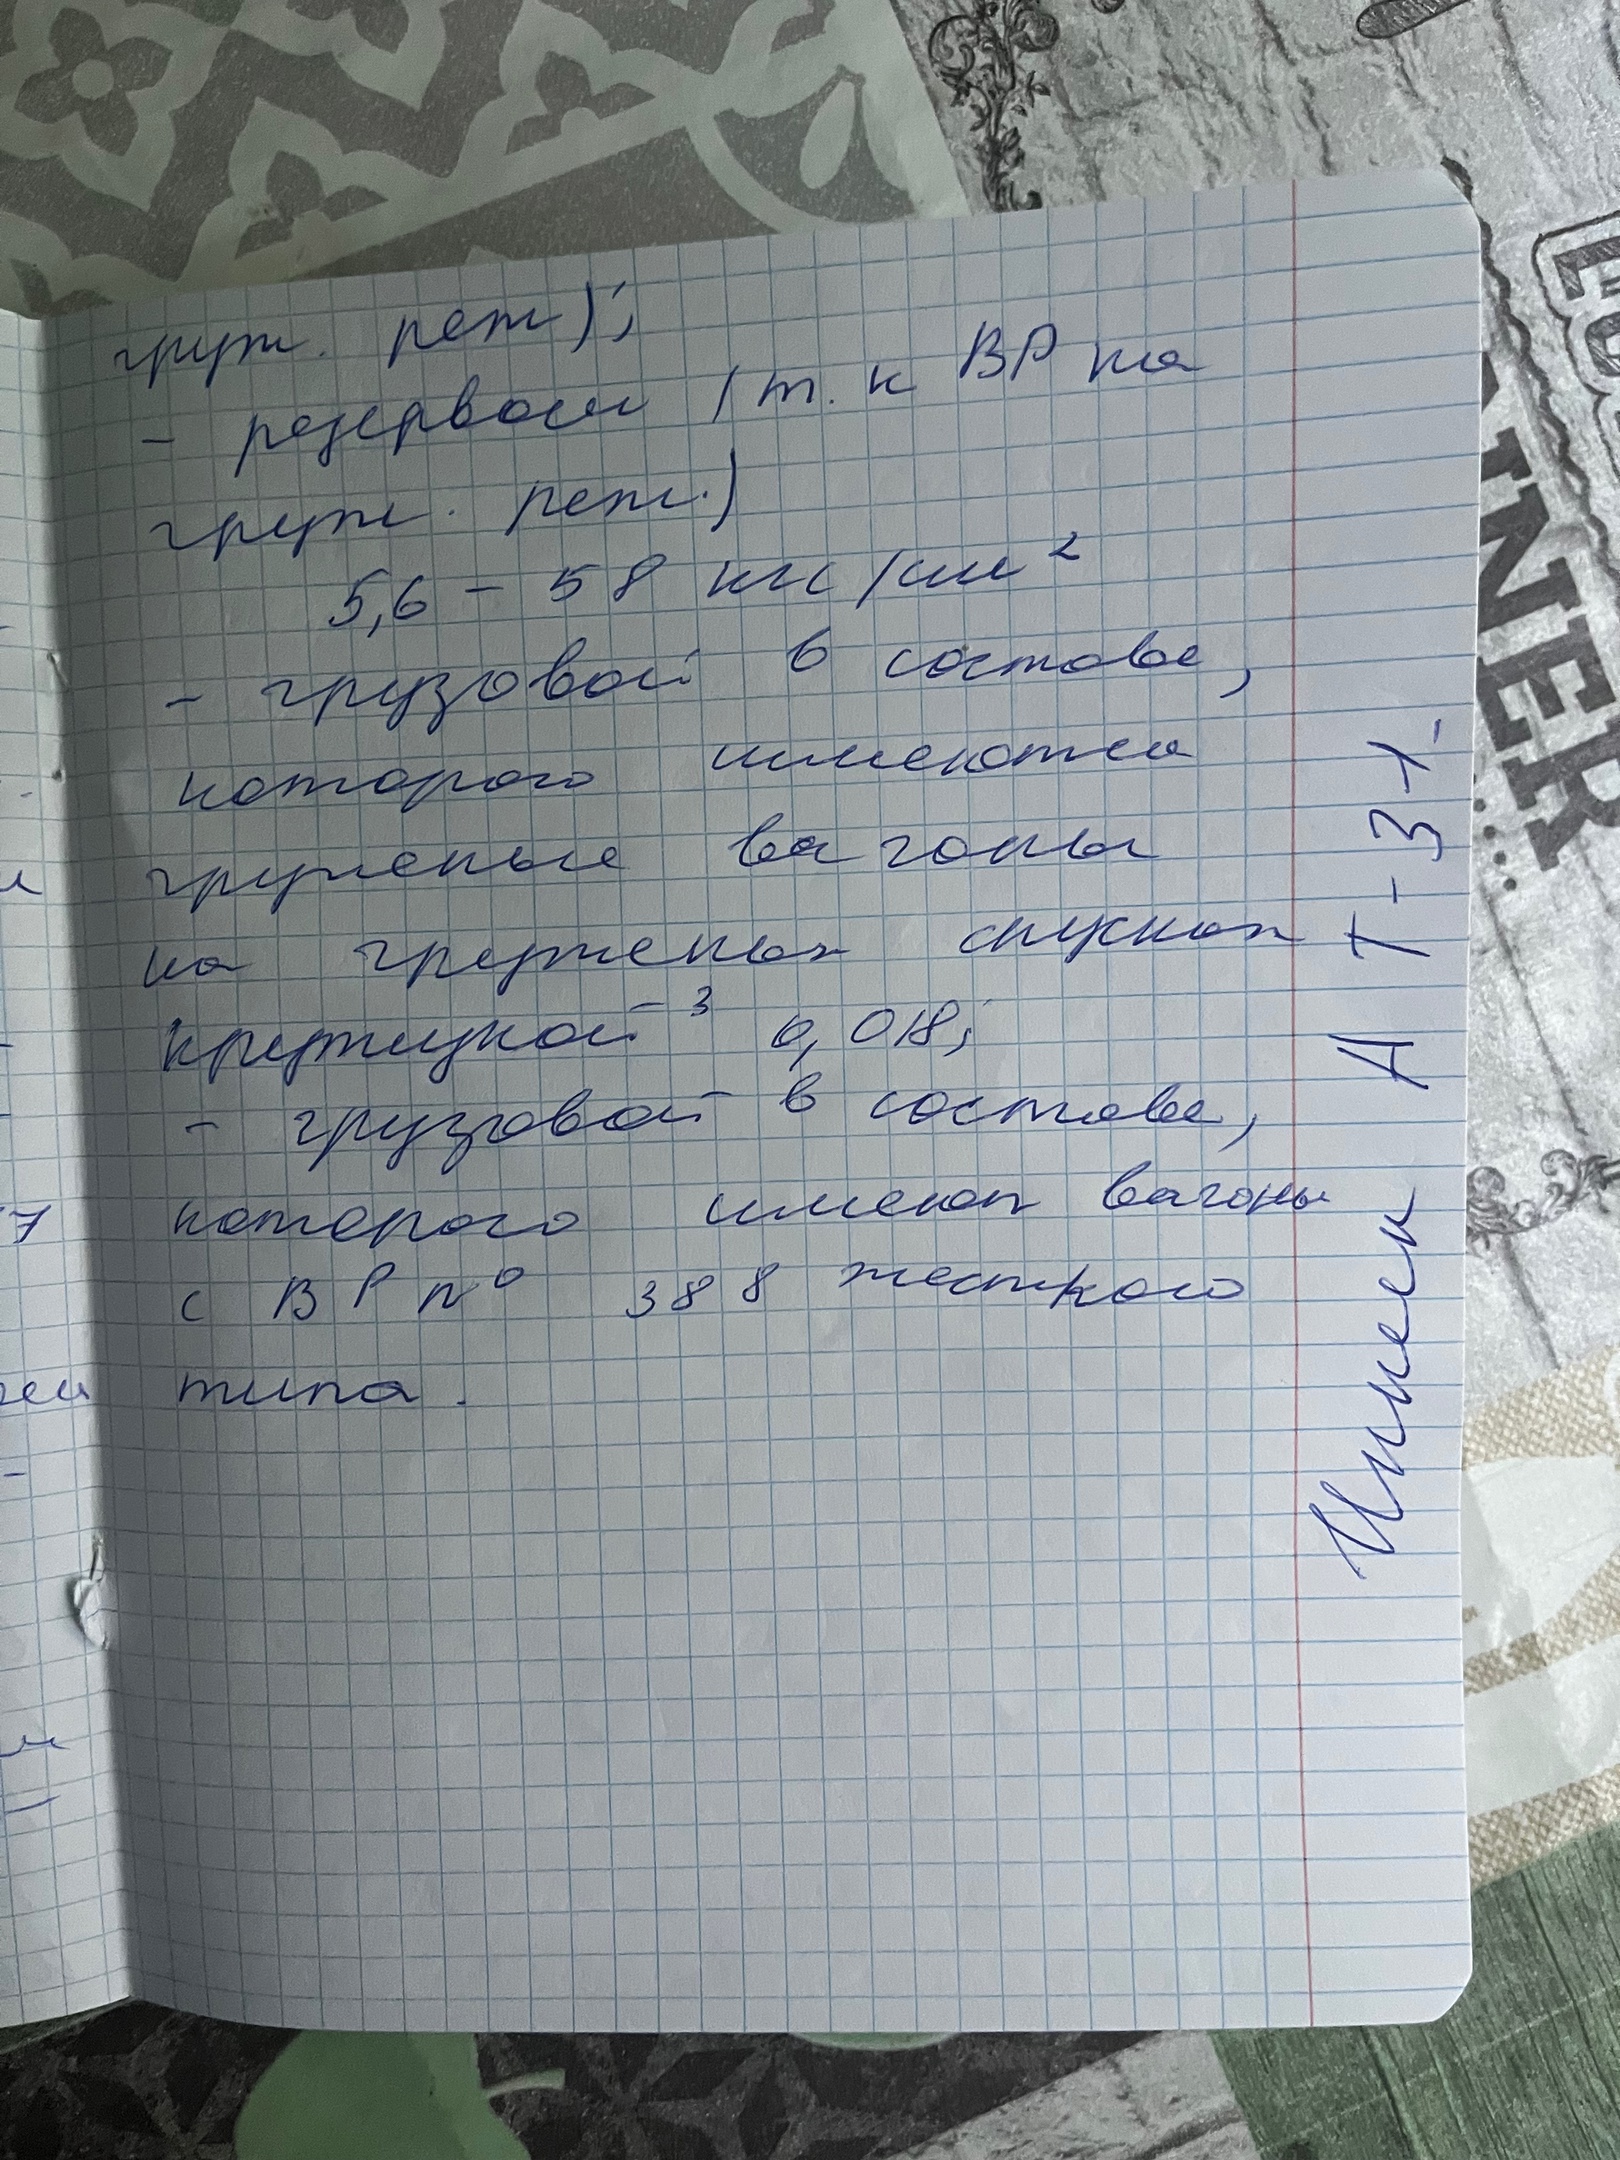 груж. реж);
- резервом (т. к ВР на
груж. реж.)
5,6 - 58 кгс/см²
- грузовой в составе,
которого имеются
груженые вагоны
на груженых спусках
крутизной ³ 0,018;
- грузовой в составе,
которого имеют вагоны
с ВР № 388 жесткого
типа.
А Т-3-1
INER